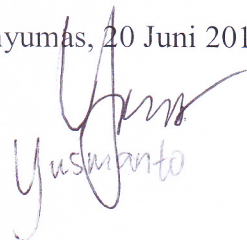 nyumas, 20 Juni 201
Yusmanto